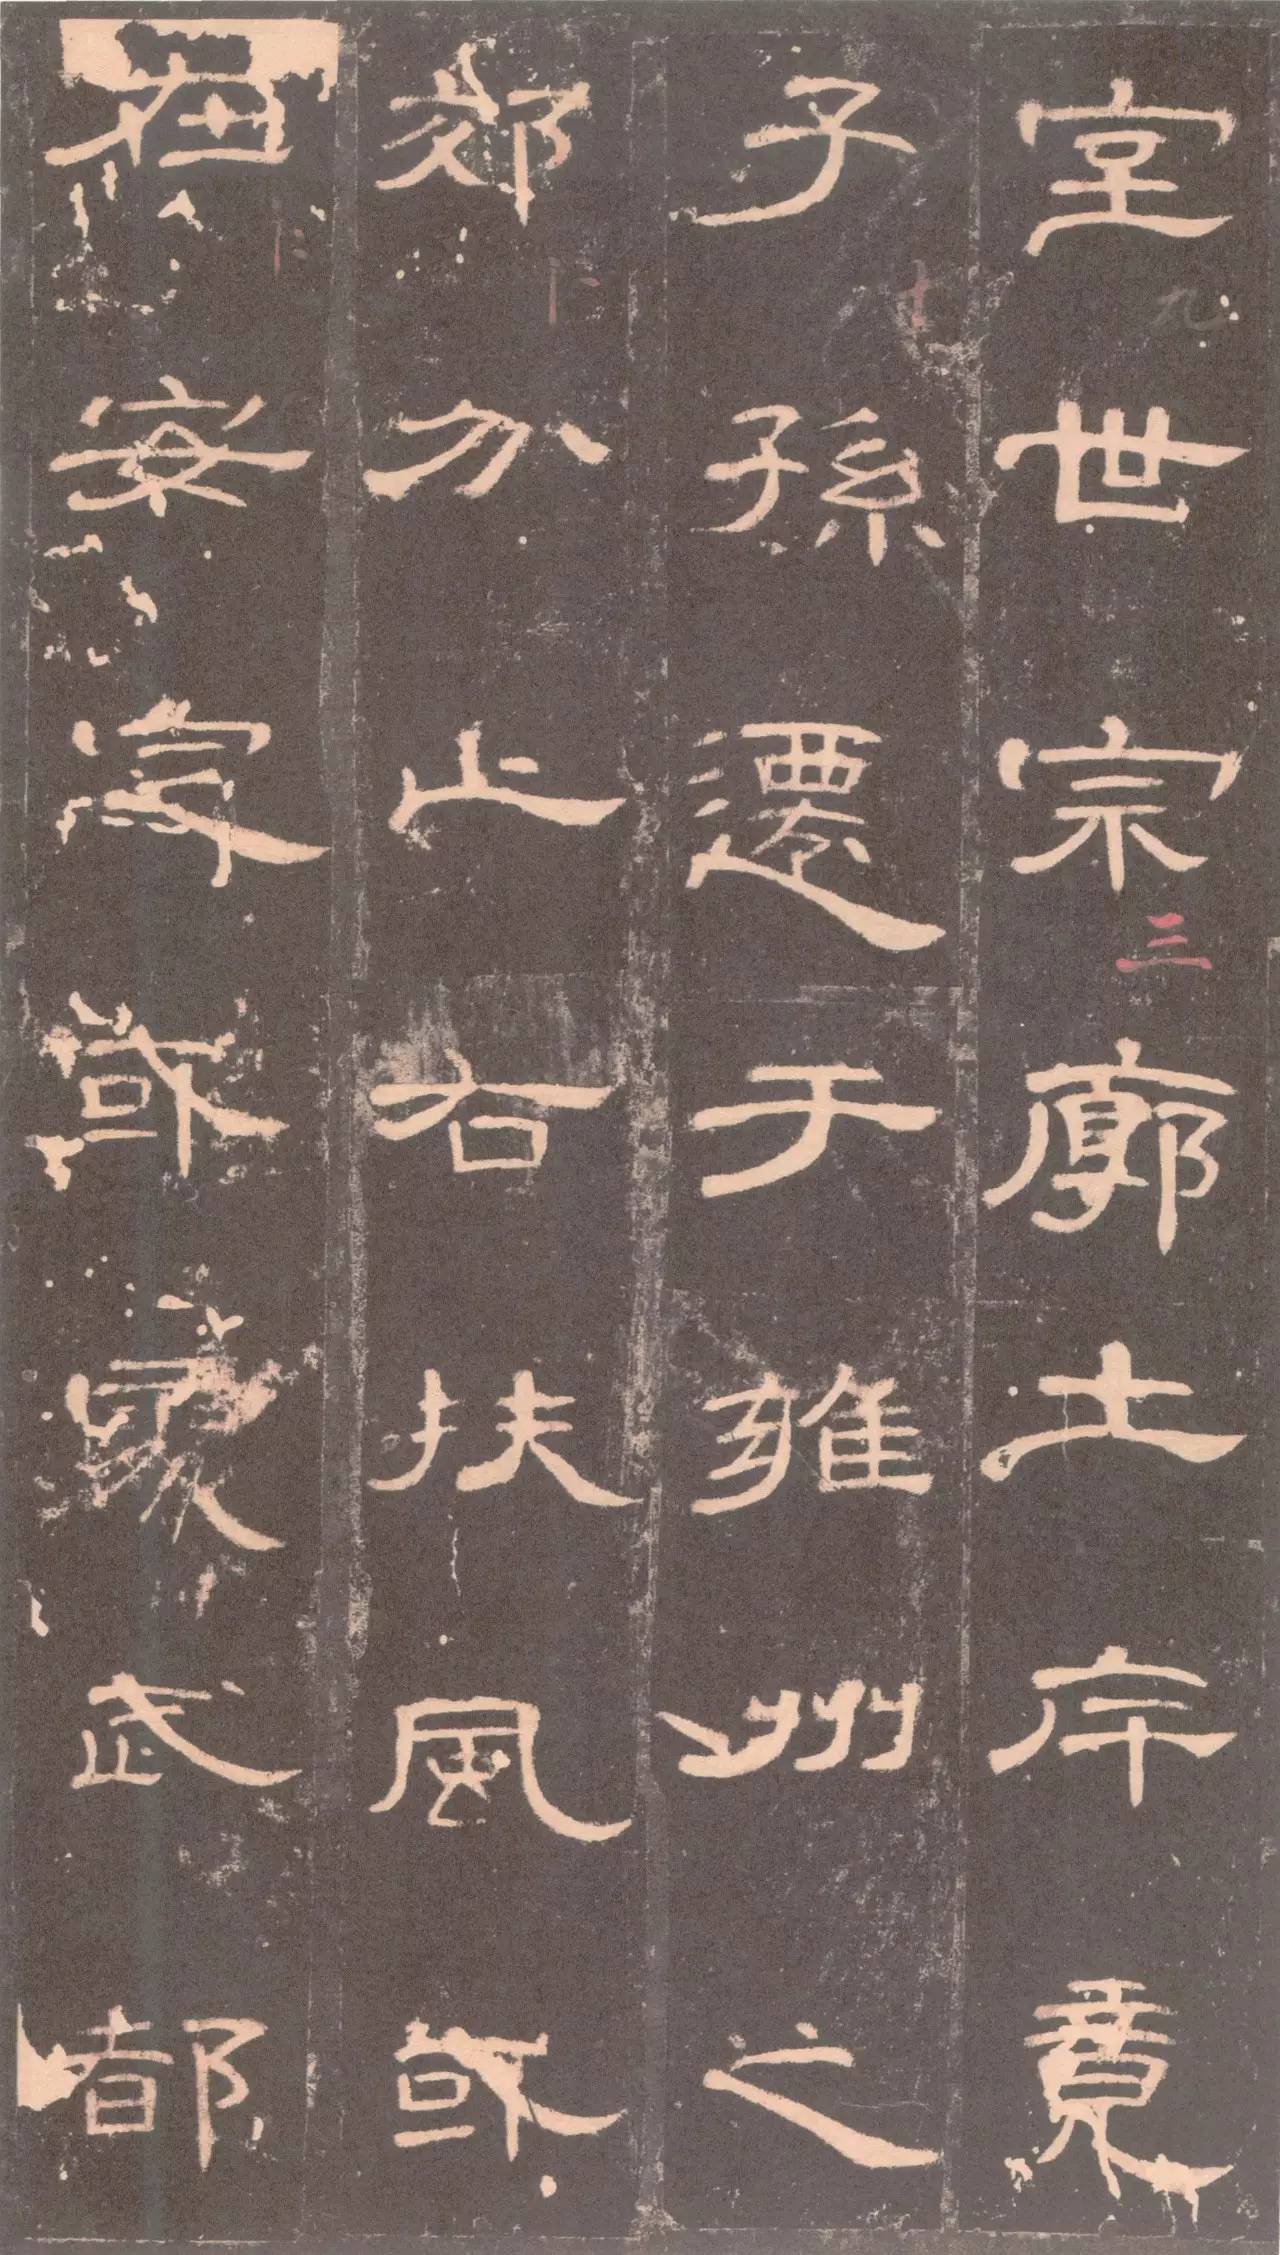 室世宗廓土斥竟
子孫遷于雍州之
郊分止右扶風或
在安定或處武都
九
三